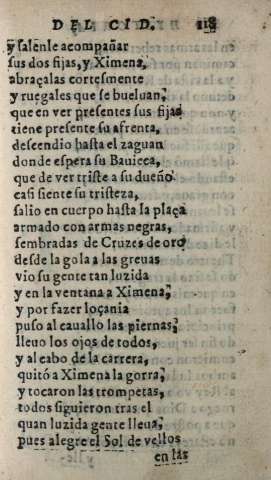 DEL CID. 118
y salenle acompañar
sus dos fijas, y Ximena,
abraçalas cortesmente
y ruegales que se bueluan,
que en ver presentes sus fijas
tiene presente su afrenta,
descendio hasta el zaguan
donde espera su Bauieca,
que de ver triste a su dueño
casi siente su tristeza,
salio en cuerpo hasta la plaça
armado con armas negras,
sembradas de Cruzes de oro
desde la gola a las greuas
vio su gente tan luzida
y en la ventana a Ximena,
y por fazer loçania
puso al cauallo las piernas,
lleuo los ojos de todos,
y al cabo de la carrera,
quitó a Ximena la gorra,
y tocaron las trompetas,
todos siguieron tras el
quan luzida gente lleua,
pues alegre el Sol de vellos
en las